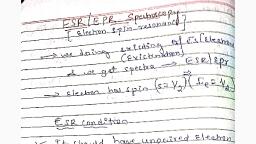 ESR/EPR Spectroscopy
[Electron spin resonance]
→ we doing exciding of e⁻s [electron
(Excitination)
& we get spectra → ESR/EPR
→ electron has spin (s=1/2)
ESR condition
It should have unpaired electron